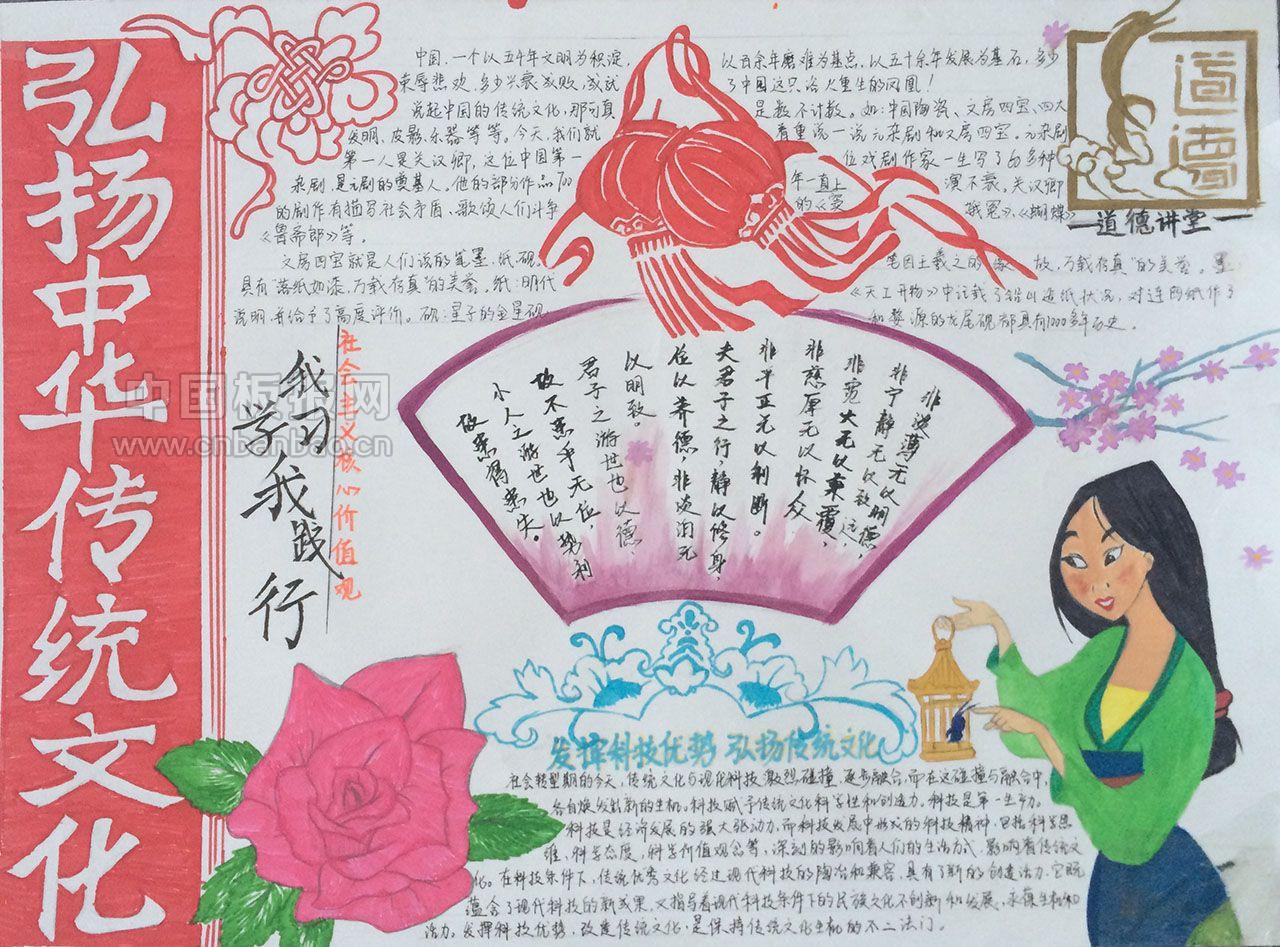 弘扬中华传统文化
中国，一个以五千年文明为积淀，以百余年磨难为基点，以五十余年发展为基石，多少
荣辱悲欢，多少兴衰成败，成就了中国这只浴火重生的凤凰！
说起中国的传统文化，那可真是数不计数。如：中国陶瓷、文房四宝、四大
发明、皮影、乐器等等。今天，我们就着重说一说元杂剧和文房四宝。元杂剧
第一人是关汉卿，这位中国第一位戏剧作家一生写了60多种
杂剧，是元剧的奠基人。他的部分作品700年一直上演不衰。关汉卿
的剧作有描写社会矛盾、歌颂人们斗争的《窦娥冤》、《蝴蝶》
《鲁斋郎》等。
文房四宝就是人们说的笔墨、纸、砚。笔因王羲之的 故，万载存真"的美誉。墨
具有"落纸如漆，万载存真"的美誉。纸：明代《天工开物》中记载了铅山造纸状况，对连四纸作了
说明并给予了高度评价。砚：星子的金星砚和婺源的龙尾砚都具有1000多年历史。
道德
道德讲堂
社会主义核心价值观
我习
学我践
行
中国板报网
www.cnbanbao.cn
非淡薄无以明德，
非宁静无以致远，
非宽大无以兼覆，
非慈厚无以怀众
非平正无以制断。
夫君子之行，静以修身，
位以养德，非淡泊无
以明致。
君子之游世也以德，
故不患乎无位，
小人之游世也以势利
故患得患失。
发挥科技优势 弘扬传统文化
社会转型期的今天，传统文化与现代科技激烈碰撞，逐步融合，而在这碰撞与融合中，
各自焕发出新的生机。科技赋予传统文化科学性和创造力。科技是第一生产力。
科技是经济发展的强大驱动力，而科技发展中形成的科技精神，包括科学思
维，科学态度，科学价值观念等，深刻的影响着人们的生活方式，影响着传统文
化。在科技条件下，传统优秀文化经过现代科技的陶冶和兼容，具有了新的创造活力，它既
蕴含了现代科技的新成果，又指导着现代科技条件下的民族文化不创新和发展，永葆生机和
活力。发挥科技优势，改造传统文化，是保持传统文化生机的不二法门。